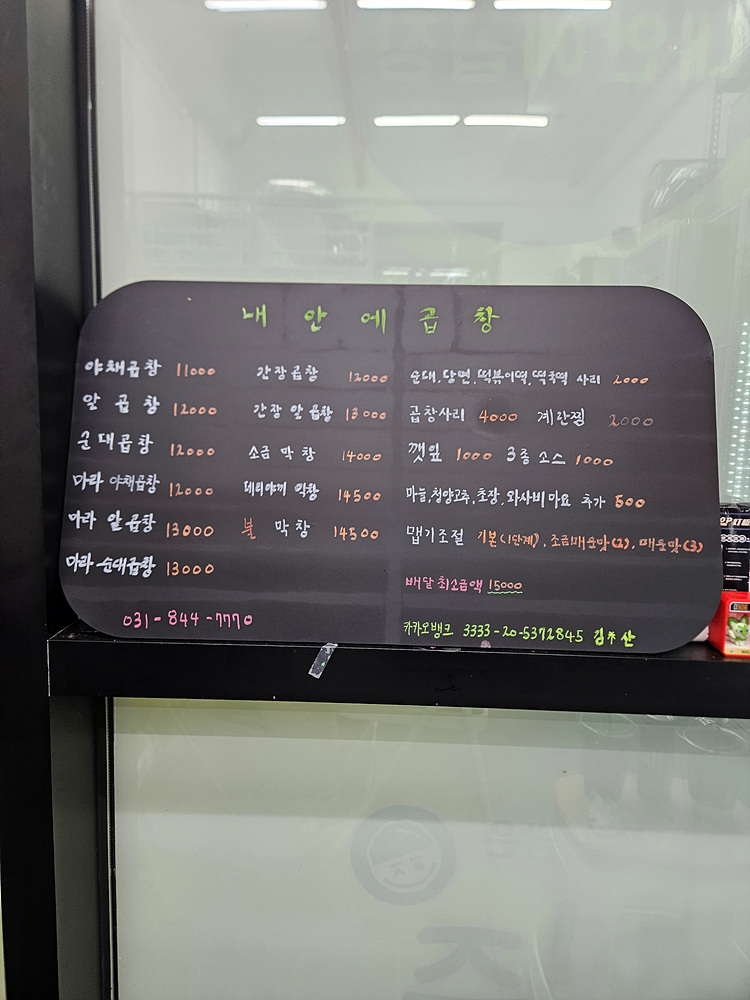 내 안 에 곱 창
야채곱창 11000
알 곱 창 12000
순대곱창 12000
마라 야채곱창 12000
마라 알곱창 13000
마라 순대곱창 13000
031-844-7770
간장곱창 12000
간장 알곱창 13000
소금 막창 14000
데리야끼 막창 14500
불 막창 14500
순대, 당면, 떡볶이떡, 떡국떡 사리 2000
곱창사리 4000 계란찜 2000
깻잎 1000 3종 소스 1000
마늘, 청양고추, 초장, 와사비마요 추가 500
맵기조절 기본(1단계), 조금매운맛(2), 매운맛(3)
배달 최소금액 15000
카카오뱅크 3333-20-5372845